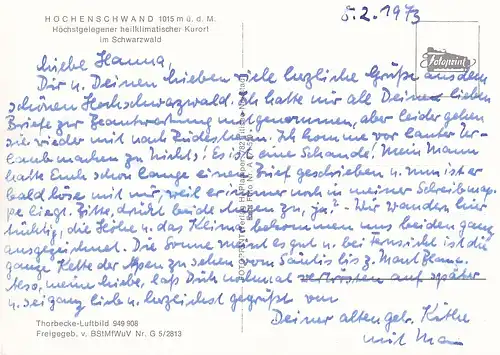 HOCHENSCHWAND 1015 m ü. d. M.
Höchstgelegener heilklimatischer Kurort
im Schwarzwald
5.2.1973
Fotoprint
Liebe Hanna,
Dir u. Deinen Lieben viele herzliche Grüße aus dem
schönen Hochschwarzwald. Ich hatte mir all Deine lieben
Briefe zur Beantwortung mitgenommen, aber leider gehen
sie wieder mit nach Rüdesheim. Ich komme vor lauter Ur-
laubmachen zu nichts! Es ist eine Schande! Mein Mann
hatte Euch schon lange einen Brief geschrieben u. nun ist er
bald böse mit mir, weil er immer noch in meiner Schreibmap-
pe liegt. Bitte, drückt beide Augen zu, ja? - Wir wandern hier
tüchtig, die Höhe u. das Klima bekommen uns beiden ganz
ausgezeichnet. Die Sonne meint es gut u. bei Fernsicht ist die
ganze Kette der Alpen zu sehen vom Säntis bis z. Mont Blanc.
Also, meine liebe, laß Dich nochmal vertrösten auf später
u. sei ganz lieb u. herzlichst gegrüßt von
Deiner alten gebr. Käthe
mit Mann
Thorbecke-Luftbild 949 908
Freigegeb. v. BStMfWuV Nr. G 5/2813